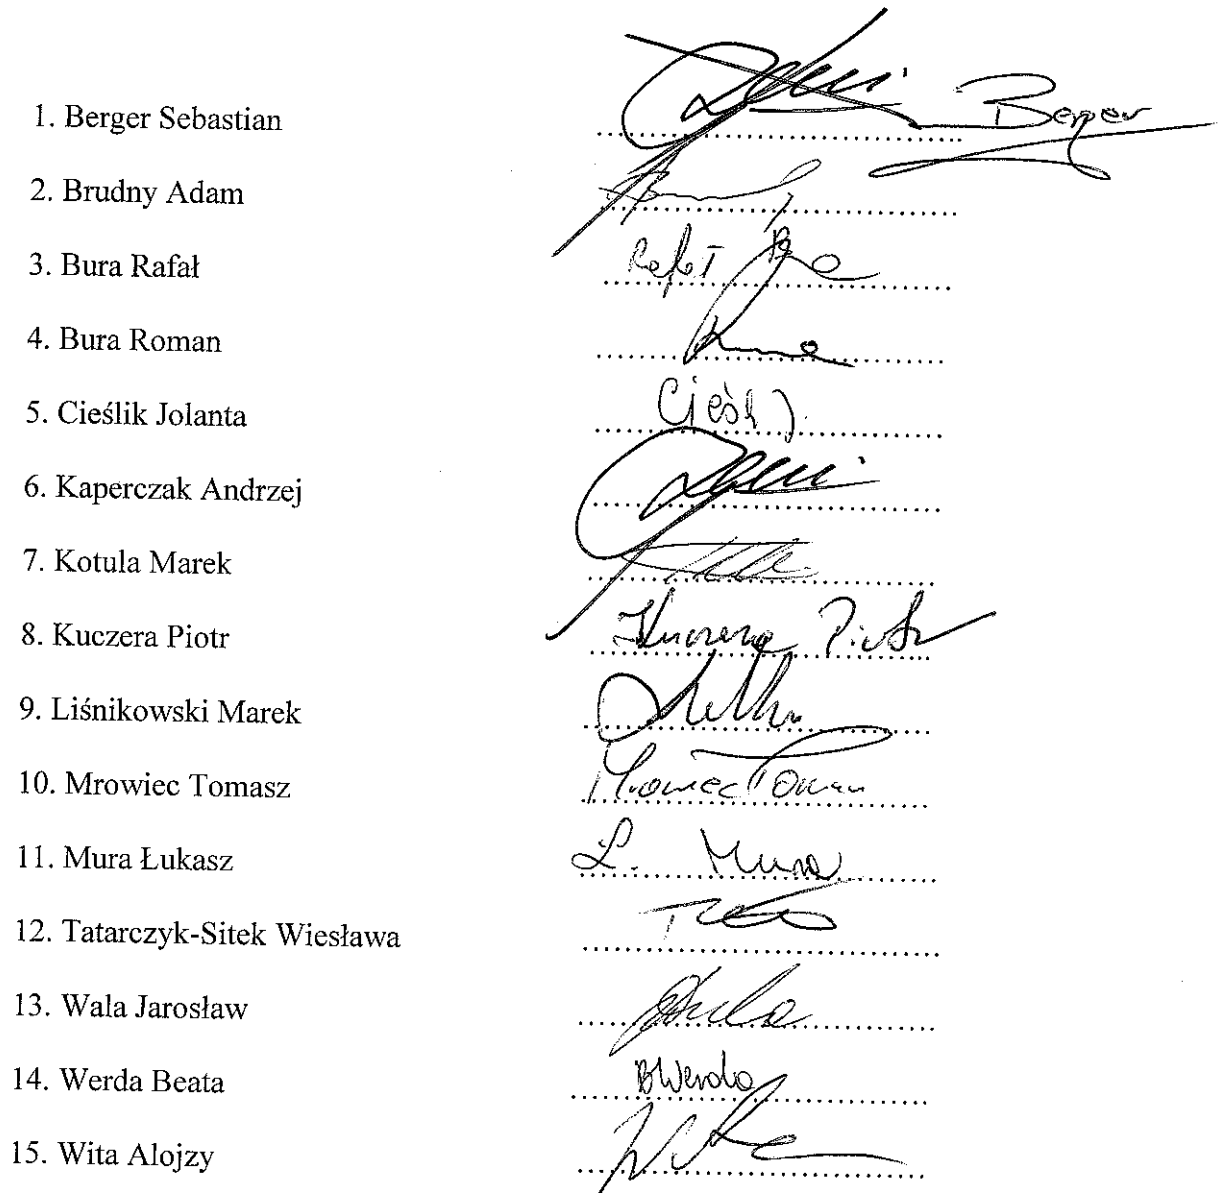 1. Berger Sebastian Berger
2. Brudny Adam
3. Bura Rafał Rafał
4. Bura Roman
5. Cieślik Jolanta
6. Kaperczak Andrzej
7. Kotula Marek
8. Kuczera Piotr Kuczera Piotr
9. Liśnikowski Marek
10. Mrowiec Tomasz Mrowiec Tomasz
11. Mura Łukasz Ł. Mura
12. Tatarczyk-Sitek Wiesława
13. Wala Jarosław
14. Werda Beata BWerda
15. Wita Alojzy